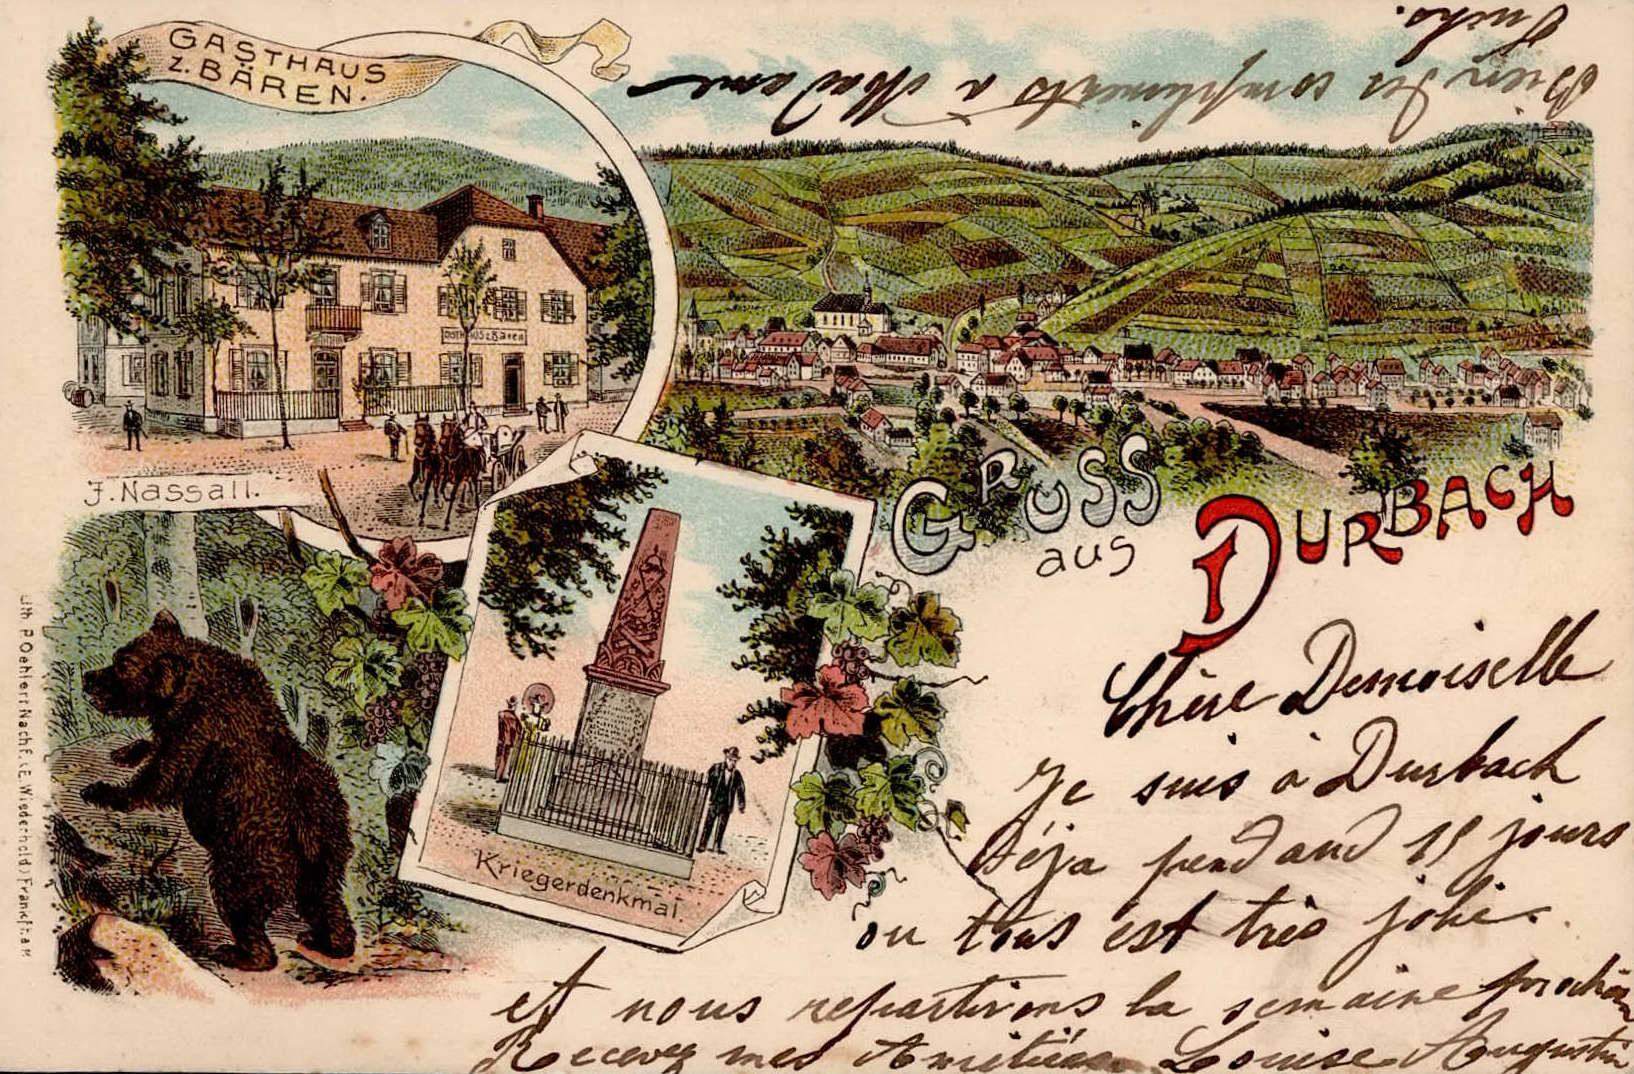 GASTHAUS
z. BÄREN.
Gasthaus z. Bären
J. Nassall.
Kriegerdenkmal.
GRUSS
aus
DURBACH
Lith. P. Oehler Nachf. (E. Wiederhold) Frankf. a. M.
Chère Demoiselle
Je suis à Durbach
déja pendand 15 jours
ou tous est très jolie.
et nous repartirons la semaine prochain
Recevez mes Amitiées Louise Augustin
Bien des compliments a Madame